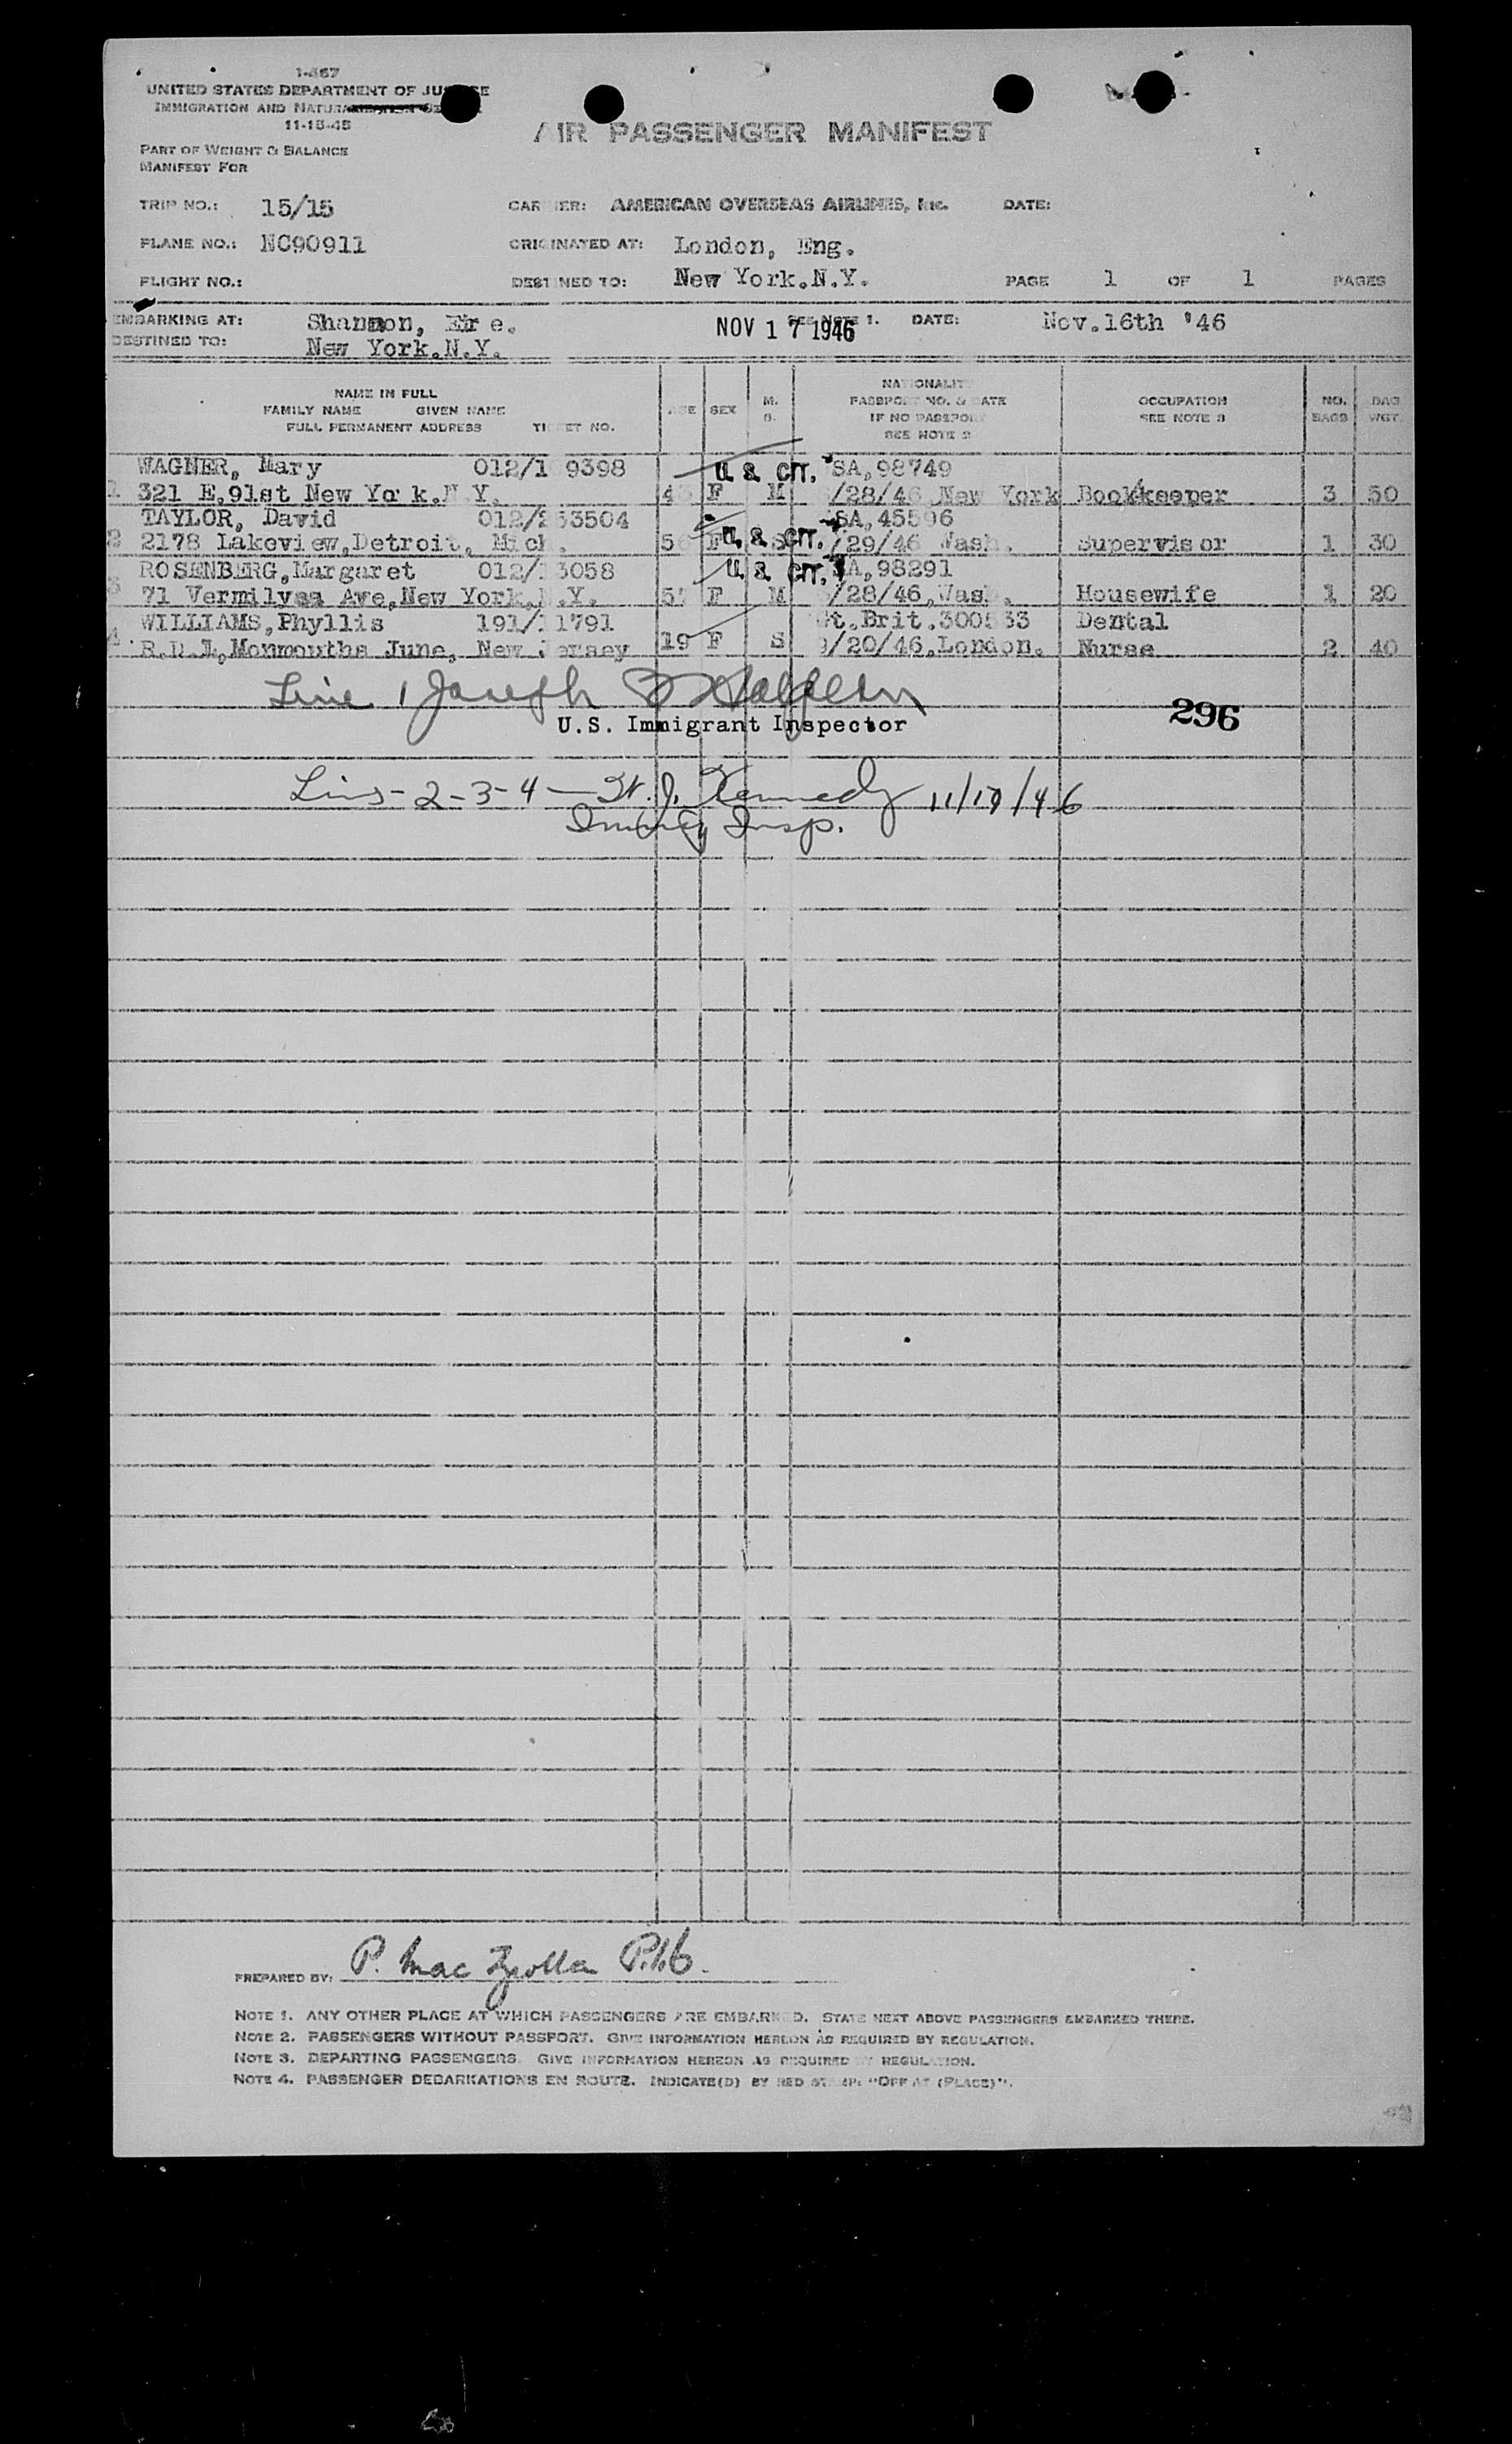 1-467
UNITED STATES DEPARTMENT OF JUSTICE
IMMIGRATION AND
11-15-45
AIR PASSENGER MANIFEST
PART OF WEIGHT & BALANCE
MANIFEST FOR
TRIP NO.: 15/15 CARRIER: AMERICAN OVERSEAS AIRLINES, Inc. DATE:
PLANE NO.: NC90911 ORIGINATED AT: London, Eng.
FLIGHT NO.: DESTINED TO: New York.N.Y. PAGE 1 OF 1 PAGES
EMBARKING AT: Shannon, Eire. NOV 17 1946 SEE NOTE 1. DATE: Nov.16th '46
DESTINED TO: New York.N.Y.
NAME IN FULL
FAMILY NAME GIVEN NAME
FULL PERMANENT ADDRESS TICKET NO.
AGE SEX M. S.
NATIONALITY
PASSPORT NO. & DATE
IF NO PASSPORT
SEE NOTE 2
OCCUPATION
SEE NOTE 3
NO. BAGS
BAG WGT.
WAGNER, Mary 012/1 9398 U.S. CIT. SA,98749
1 321 E,91st New York.N.Y. 4 F M /28/46 New York Bookkeeper 3 50
TAYLOR, David 012/2 3504 U.S. CIT. SA,45596
2 2178 Lakeview,Detroit, Mich. 5 F S /29/46 Wash. Supervisor 1 30
ROSENBERG,Margaret 012/1 3058 U.S. CIT. A,98291
3 71 Vermilyea Ave,New York,N.Y. 5 F M /28/46,Wash. Housewife 1 20
WILLIAMS,Phyllis 191/1 1791 Gt.Brit.300533 Dental
4 R.D.1,Monmouths June, New Jersey 19 F S /20/46,London. Nurse 2 40
Line 1 Joseph Halpern
U.S. Immigrant Inspector 296
Lines-2-3-4- J. Kennedy 11/17/46
Immig Insp.
PREPARED BY: P. Mac
NOTE 1. ANY OTHER PLACE AT WHICH PASSENGERS ARE EMBARKED. STATE NEXT ABOVE PASSENGERS EMBARKED THERE.
NOTE 2. PASSENGERS WITHOUT PASSPORT. GIVE INFORMATION HEREON AS REQUIRED BY REGULATION.
NOTE 3. DEPARTING PASSENGERS. GIVE INFORMATION HEREON AS REQUIRED BY REGULATION.
NOTE 4. PASSENGER DEBARKATIONS EN ROUTE. INDICATE(D) BY RED STAMP: "OFF AT (PLACE)".